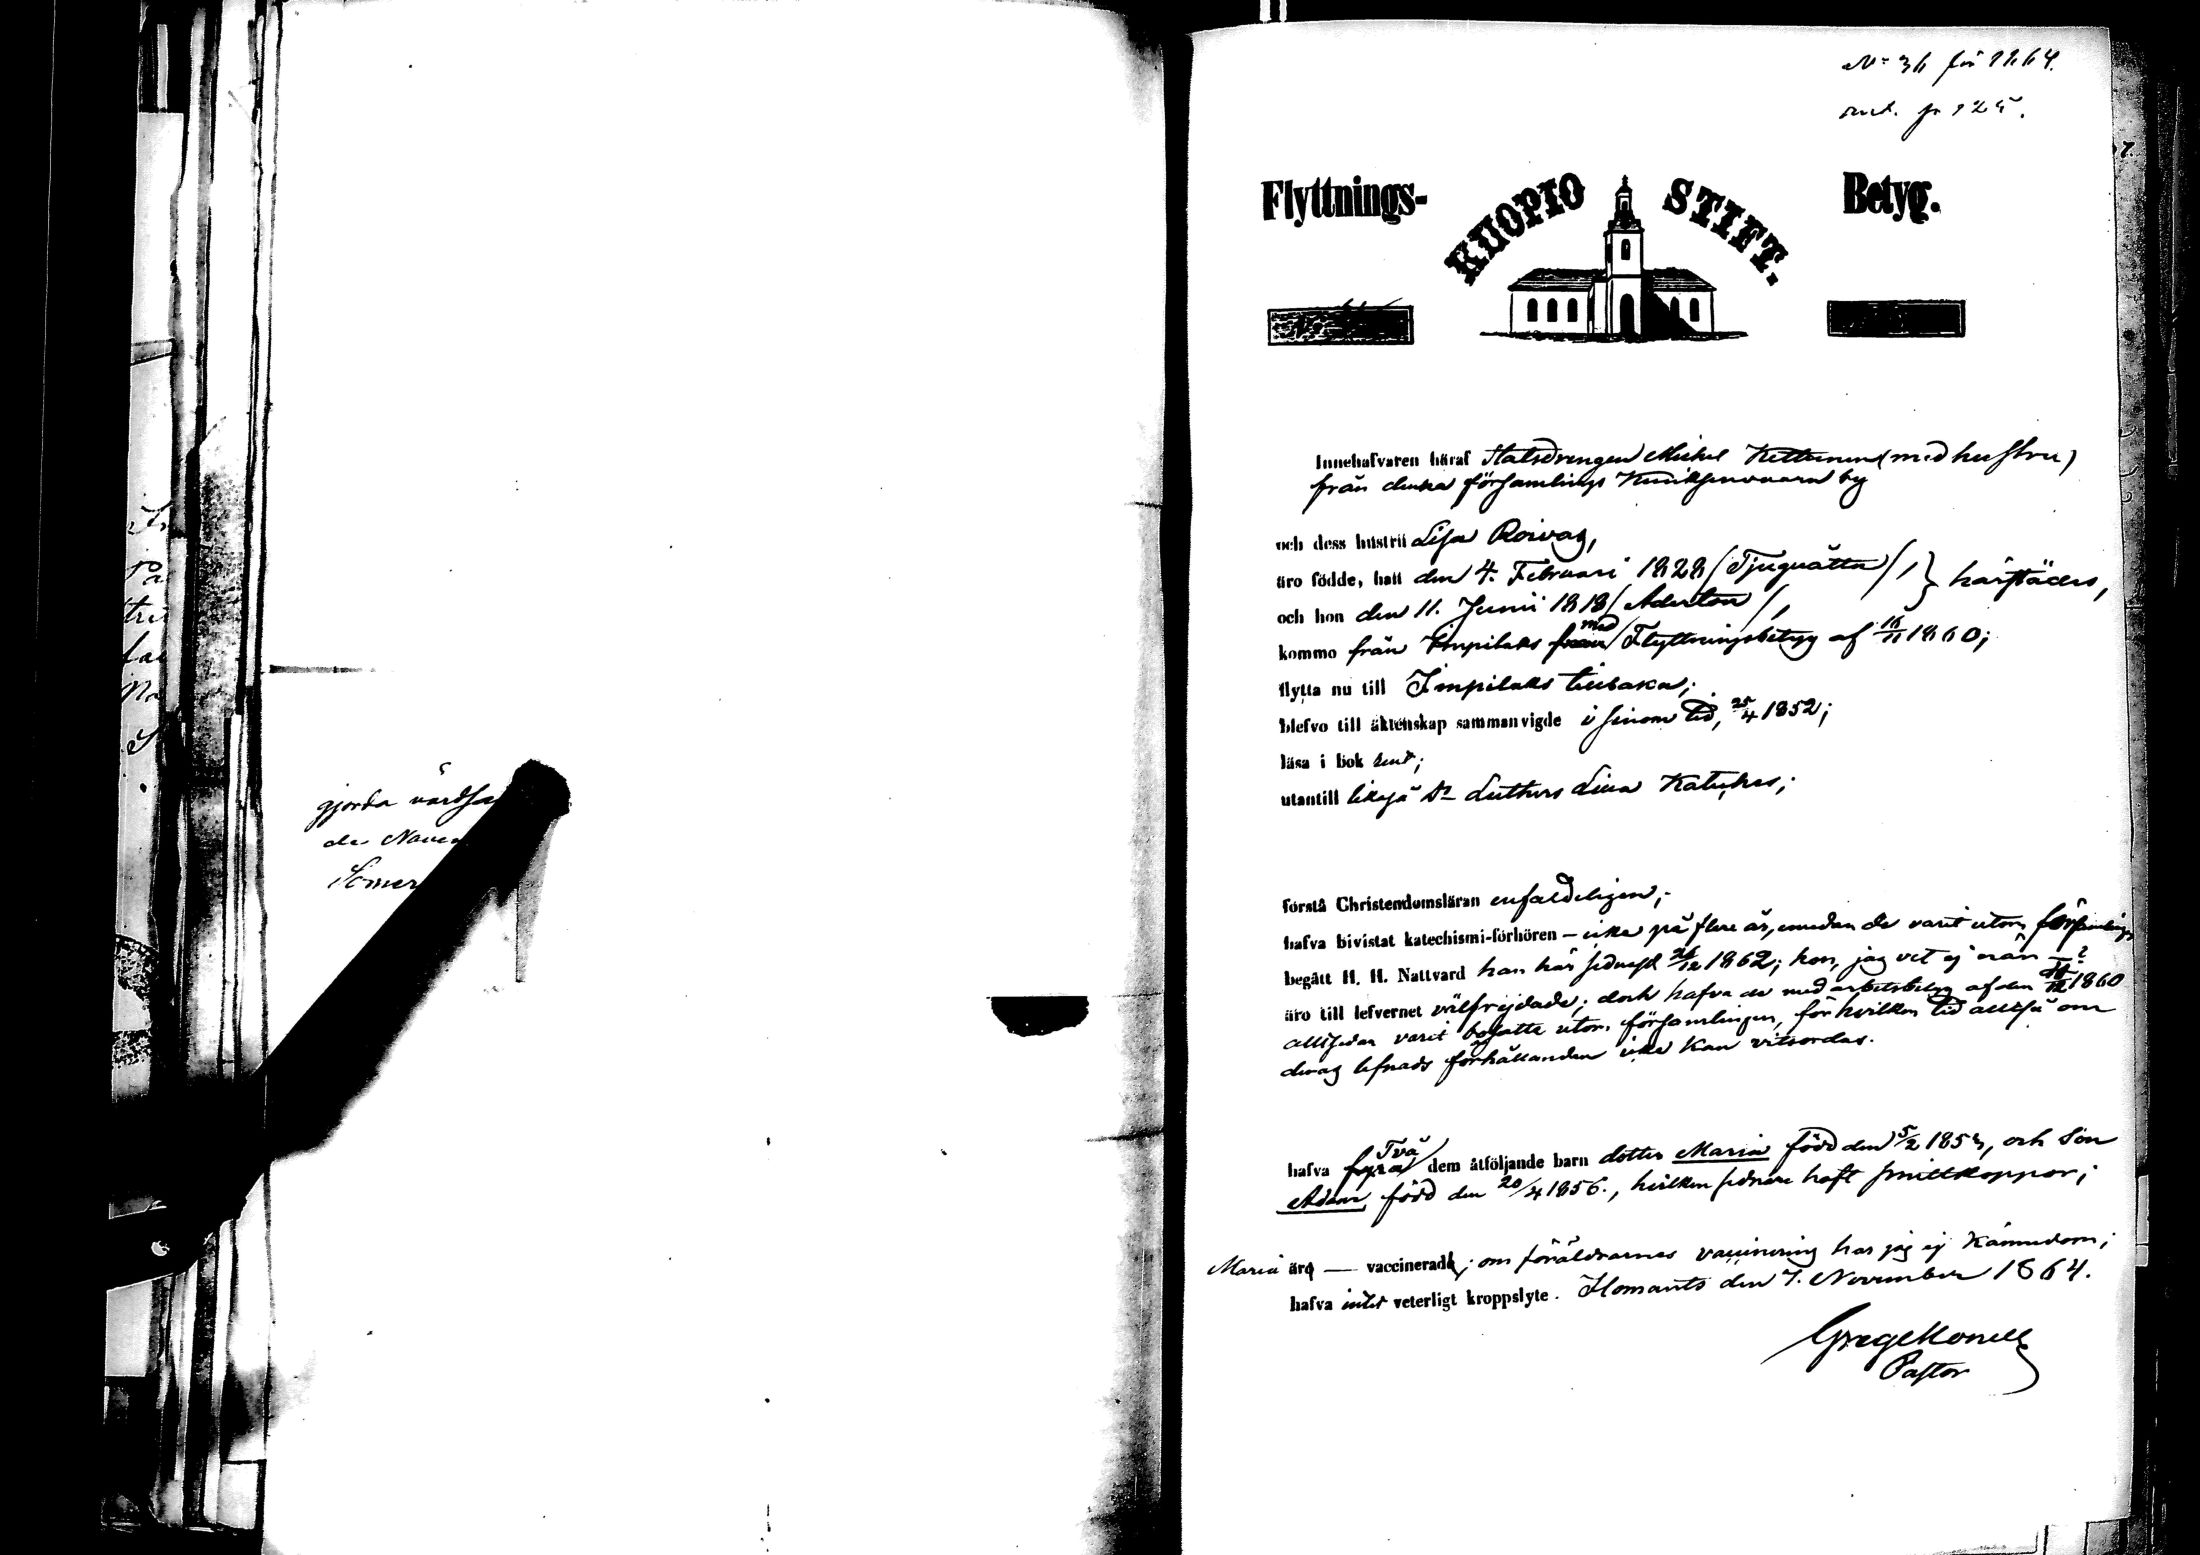 gjorda vårdsa
de Nove
Somer
N:o 36 för 1864.
p 125.
Flyttnings- KUOPIO STIFT. Betyg.
Innehafvaren häraf Statsdrengen Mickel Kettunen (med hustru)
från denna församlings by
och dess hustru Lisa Roivas,
äro födde, han den 4. Februari 1828 / Tjuguåtta /, } härstädes,
och hon den 11. Junii 1818 / Aderton /,
kommo från Impilaks med Flyttningsbetyg af 16/11 1860;
flytta nu till Impilaks tillbaka;
blefvo till äktenskap sammanvigde i sinom tid, 25/4 1852;
läsa i bok rent;
utantill likaså Dr Luthers Lilla Kateches;
förstå Christendomsläran enfaldeligen;
hafva bivistat katechismi-förhören – icke på flere år, emedan de varit utom församlings
begått H. H. Nattvard han här sednast 26/12 1862; hon, jag vet ej när – ?
äro till lefvernet välfrejdade; dock hafva de med arbetsbetyg af den 1860
alltsedan varit bosatte utom församlingen, för hvilken tid alltså om
deras lefnads förhållanden icke kan vitsordas.
hafva fyra Två dem åtföljande barn dotter Maria född den 5/2 1853, och Son
Adam, född den 20/4 1856., hvilken sednare haft smittkoppor;
Maria äro — vaccinerade; om föräldrarnes vaccinering har jag ej kännedom;
hafva intet veterligt kroppslyte. Ilomants den 7. November 1864.
Pastor